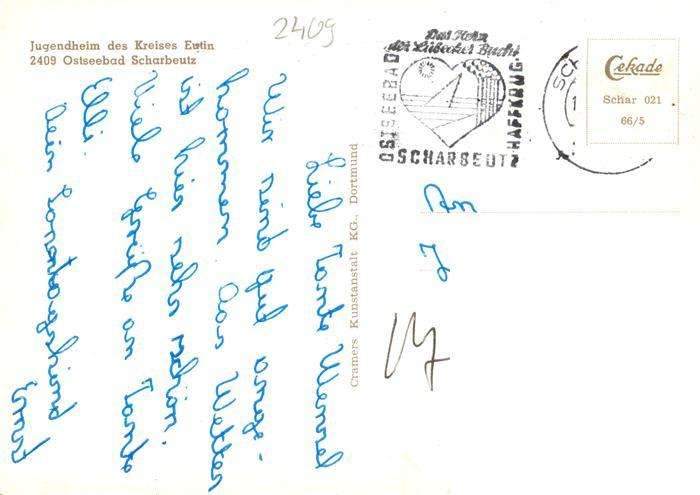 Jugendheim des Kreises Eutin
2409 Ostseebad Scharbeutz
2409
Das Herz
der Lübecker Bucht
OSTSEEBAD
SCHARBEUTZ
HAFFKRUG
Cekade
Schar 021
66/5
Cramers Kunstanstalt KG., Dortmund
Liebe Tante
Wir sind gut ange-
kommen. Das Wetter
ist hier sehr schön.
Viele Grüße an Tante
Elli.
Dein
An